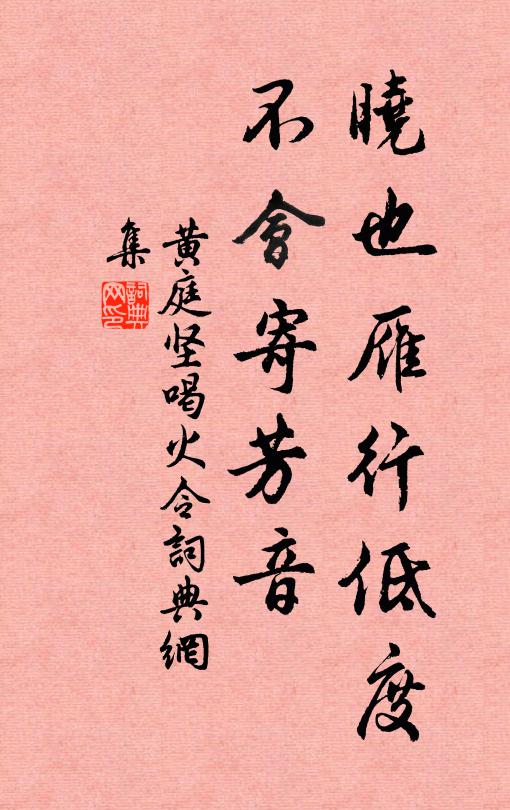 曉也雁行低度
不會寄芳音
黄庭坚喝火令詞典網
集
詞典
网印